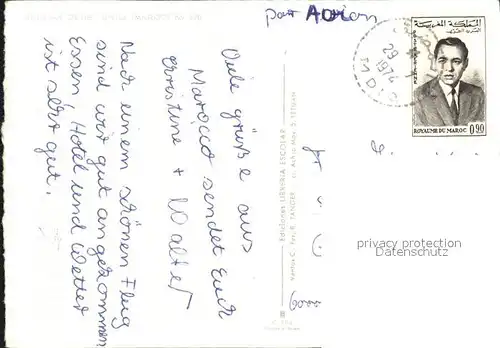 par Avion
Viele grüße aus
Marocco sendet Euch
Christine + Walter
Nach einem schönen Flug
sind wir gut angekommen
Essen, Hotel und Wetter
ist sehr gut.
Ediciones LIBRERIA ESCOLAR
TANGER
TETUAN
المملكة المغربية
ROYAUME DU MAROC 0,90
29
1974
M'DIQ
privacy protection
6000